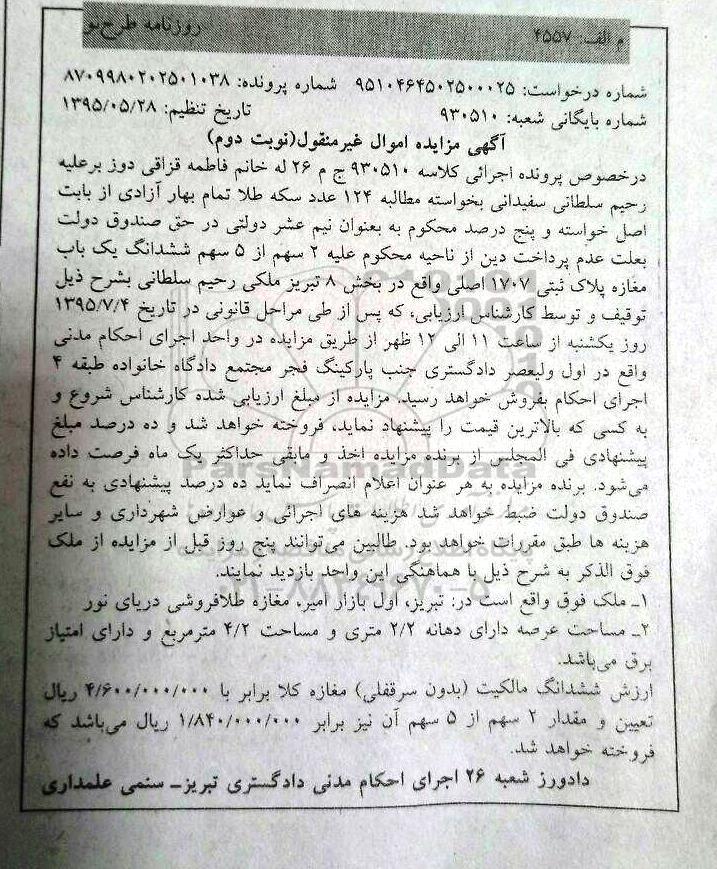 م الف. ۴۵۵۷ روزنامه طرح نو
شماره درخواست: ۹۵۱۰۴۶۴۵۰۲۵۰۰۰۲۵ شماره پرونده: ۸۷۰۹۹۸۰۲۰۲۵۰۱۰۳۸
شماره بایگانی شعبه: ۹۳۰۵۱۰ تاریخ تنظیم: ۱۳۹۵/۰۵/۲۸
آگهی مزایده اموال غیرمنقول(نوبت دوم)
درخصوص پرونده اجرائی کلاسه ۹۳۰۵۱۰ ج م ۲۶ له خانم فاطمه قزاقی دوز برعلیه
رحیم سلطانی سفیدانی بخواسته مطالبه ۱۲۴ عدد سکه طلا تمام بهار آزادی از بابت
اصل خواسته و پنج درصد محکوم به بعنوان نیم عشر دولتی در حق صندوق دولت
بعلت عدم پرداخت دین از ناحیه محکوم علیه ۲ سهم از ۵ سهم ششدانگ یک باب
مغازه پلاک ثبتی ۱۷۰۷ اصلی واقع در بخش ۸ تبریز ملکی رحیم سلطانی بشرح ذیل
توقیف و توسط کارشناس ارزیابی، که پس از طی مراحل قانونی در تاریخ ۱۳۹۵/۷/۴
روز یکشنبه از ساعت ۱۱ الی ۱۲ ظهر از طریق مزایده در واحد اجرای احکام مدنی
واقع در اول ولیعصر دادگستری جنب پارکینگ فجر مجتمع دادگاه خانواده طبقه ۴
اجرای احکام بفروش خواهد رسید. مزایده از مبلغ ارزیابی شده کارشناس شروع و
به کسی که بالاترین قیمت را پیشنهاد نماید، فروخته خواهد شد و ده درصد مبلغ
پیشنهادی فی المجلس از برنده مزایده اخذ و مابقی حداکثر یک ماه فرصت داده
می‌شود. برنده مزایده به هر عنوان اعلام انصراف نماید ده درصد پیشنهادی به نفع
صندوق دولت ضبط خواهد شد هزینه های اجرائی و عوارض شهرداری و سایر
هزینه ها طبق مقررات خواهد بود. طالبین می‌توانند پنج روز قبل از مزایده از ملک
فوق الذکر به شرح ذیل با هماهنگی این واحد بازدید نمایند.
۱ـ ملک فوق واقع است در: تبریز، اول بازار امیر، مغازه طلافروشی دریای نور
۲ـ مساحت عرصه دارای دهانه ۲/۲ متری و مساحت ۴/۲ مترمربع و دارای امتیاز
برق می‌باشد.
ارزش ششدانگ مالکیت (بدون سرقفلی) مغازه کلا برابر با ۴/۶۰۰/۰۰۰/۰۰۰ ریال
تعیین و مقدار ۲ سهم از ۵ سهم آن نیز برابر ۱/۸۴۰/۰۰۰/۰۰۰ ریال می‌باشد که
فروخته خواهد شد.
دادورز شعبه ۲۶ اجرای احکام مدنی دادگستری تبریزـ سنمی علمداری
ParsNamadData